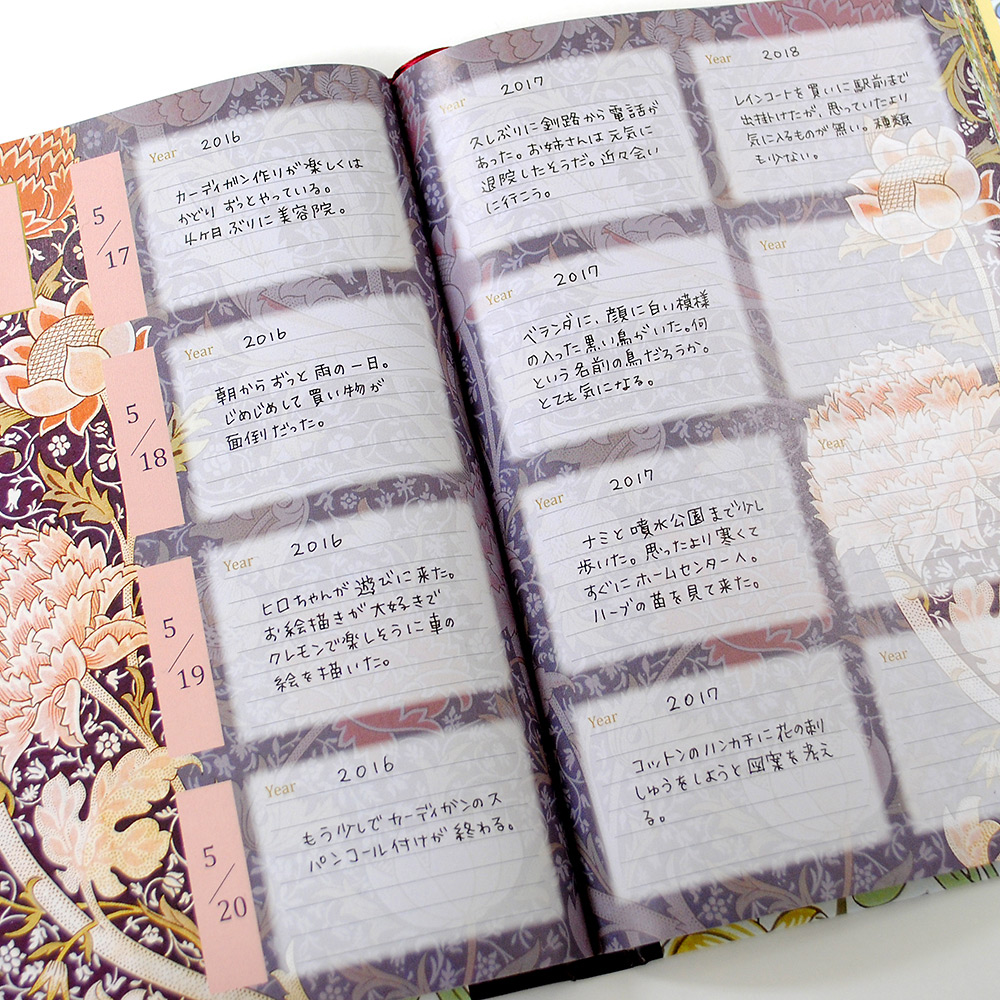 5/17
Year 2016
カーディガン作りが楽しくは
かどり ずっとやっている。
4ケ月ぶりに美容院。
Year 2017
久しぶりに釧路から電話が
あった。お姉さんは元気に
退院したそうだ。近々会い
に行こう。
Year 2018
レインコートを買いに駅前まで
出掛けたが、思っていたより
気に入るものが無い。種類
も少ない。
5/18
Year 2016
朝からずっと雨の一日。
じめじめして買い物が
面倒だった。
Year 2017
ベランダに、顔に白い模様
の入った黒い鳥がいた。何
という名前の鳥だろうか。
とても気になる。
Year
5/19
Year 2016
ヒロちゃんが遊びに来た。
お絵描きが大好きで
クレモンで楽しそうに車の
絵を描いた。
Year 2017
ナミと噴水公園まで少し
歩いた。思ったより寒くて
すぐにホームセンターへ。
ハーブの苗を見て来た。
Year
5/20
Year 2016
もう少しでカーディガンのス
パンコール付けが終わる。
Year 2017
コットンのハンカチに花の刺
しゅうをしようと図案を考え
る。
Year